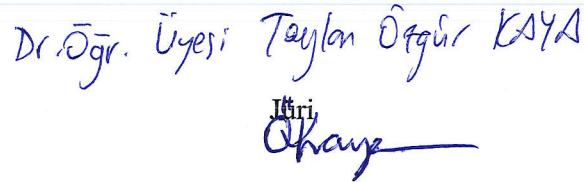 Dr. Öğr. Üyesi Taylan Özgür KAYA
Jüri
ÖKaya